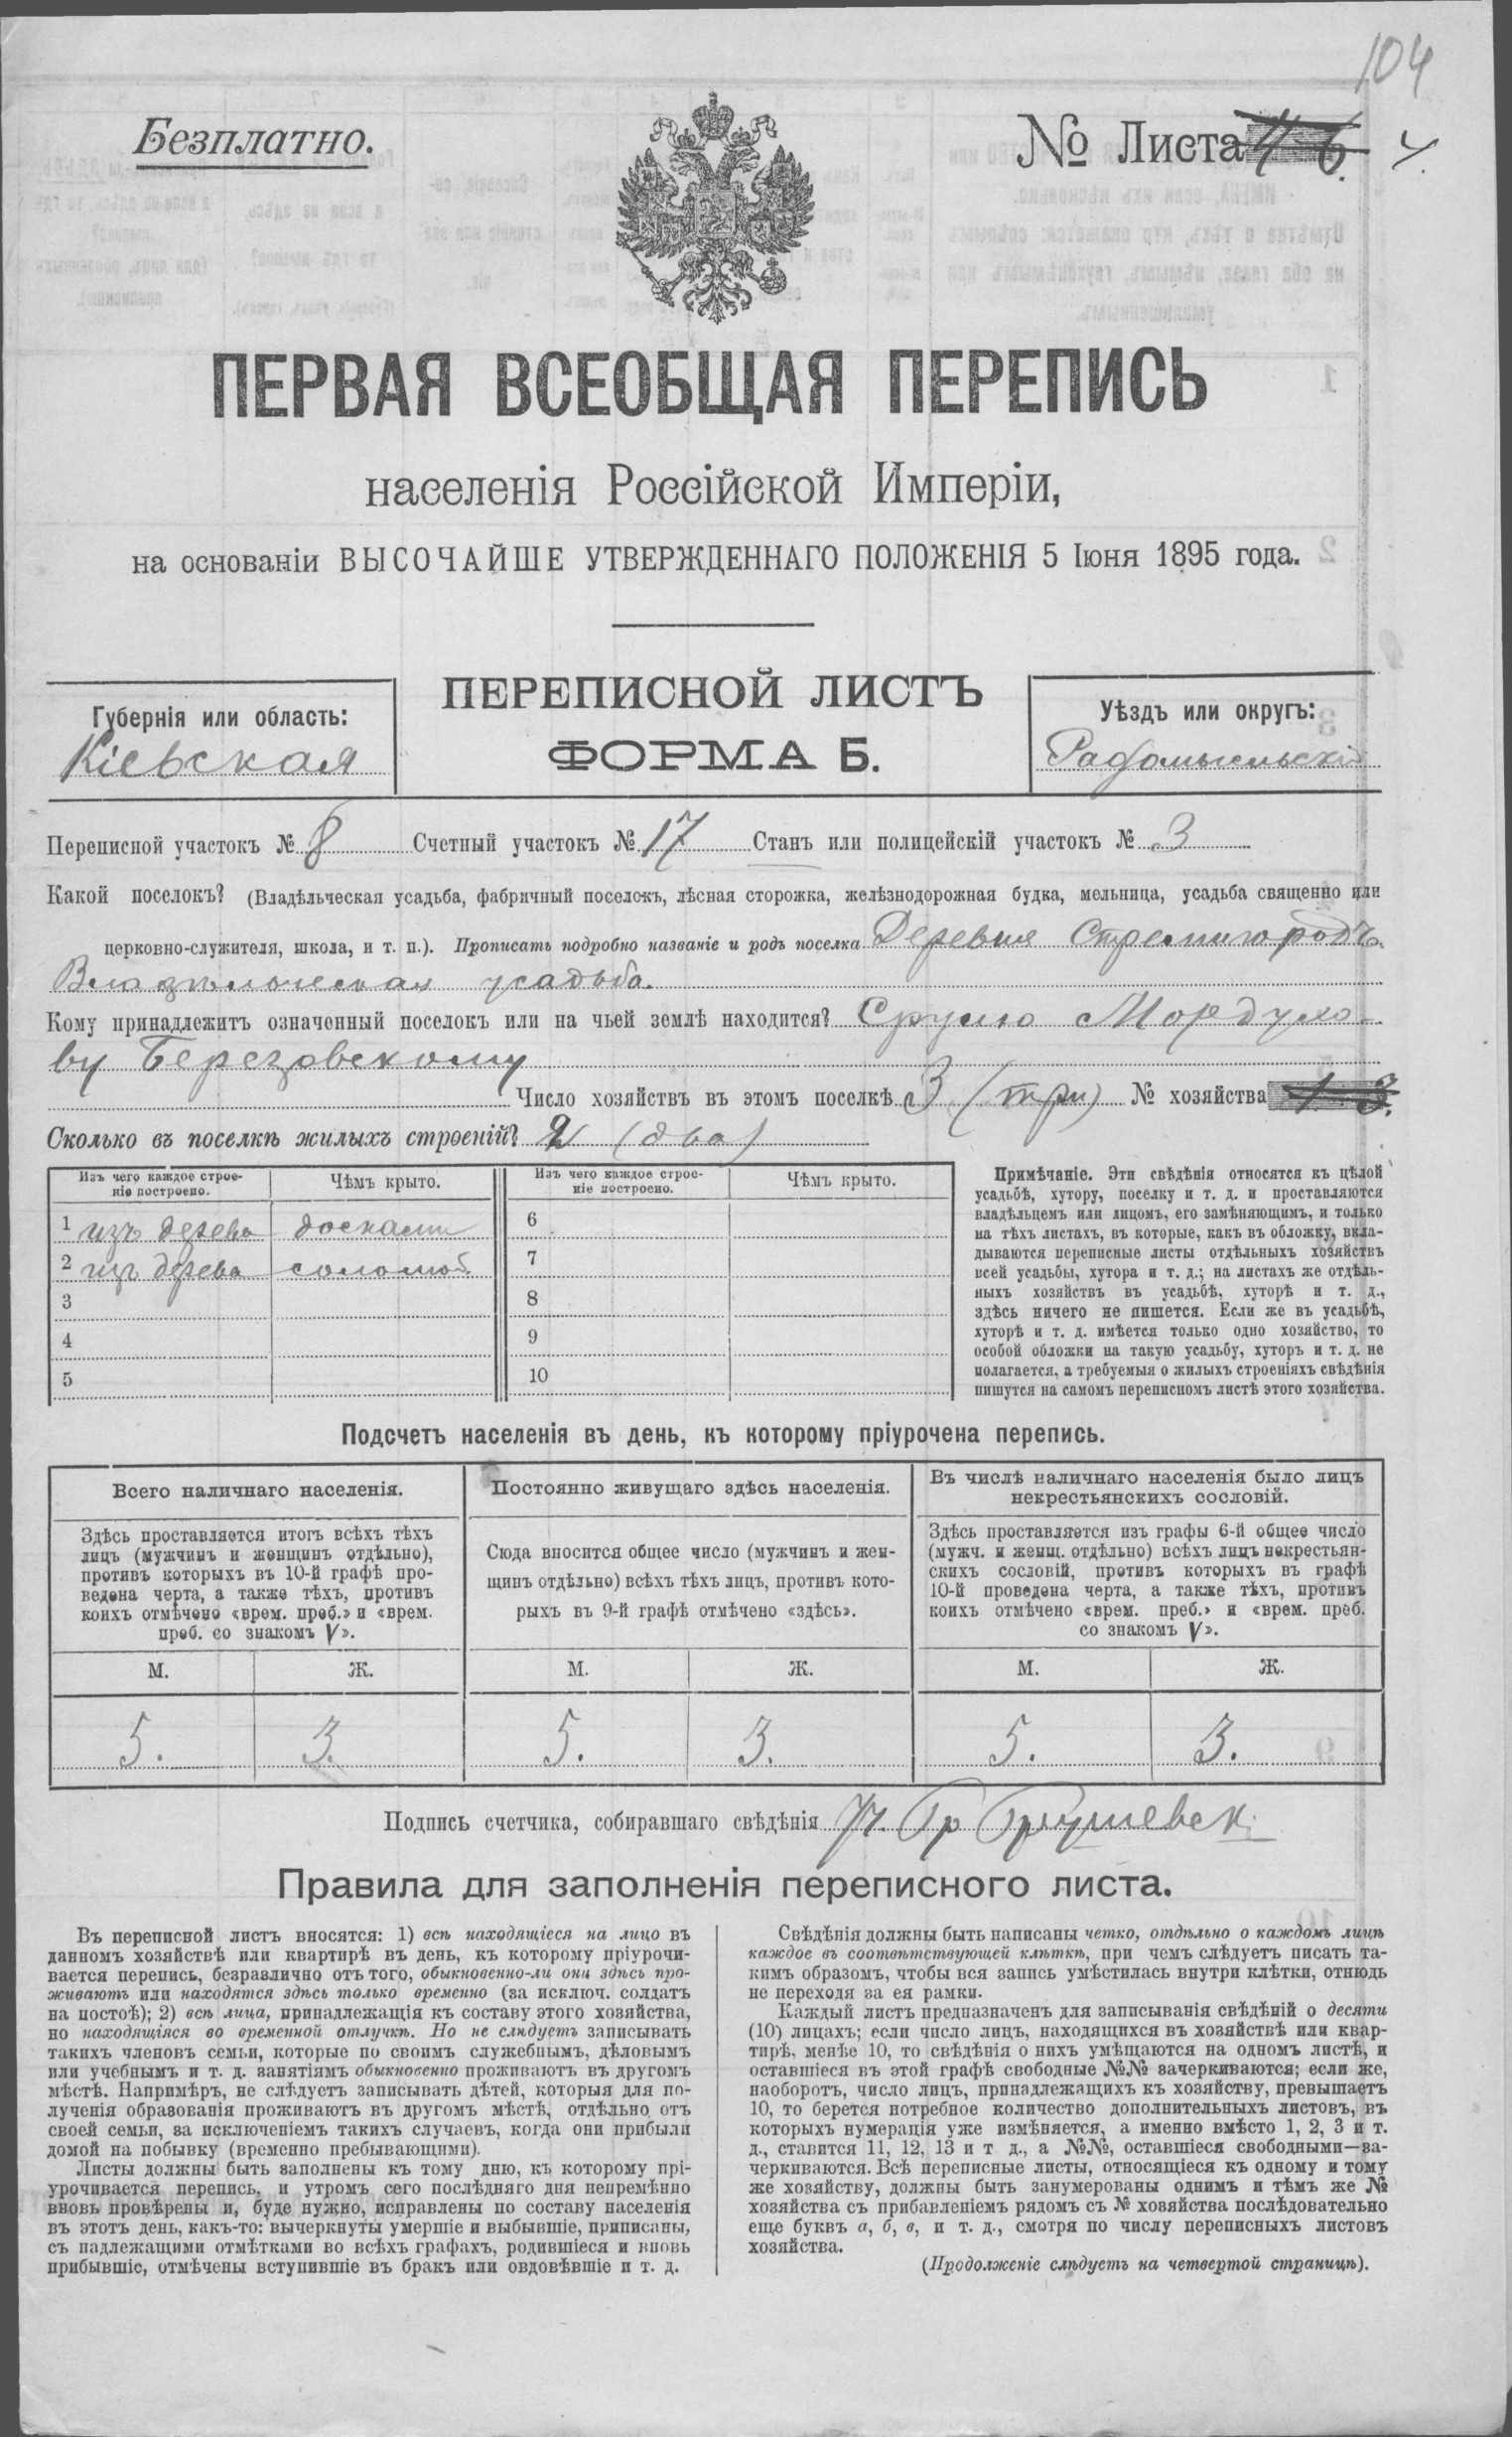 104
Безплатно.
№ Листа
ПЕРВАЯ ВСЕОБЩАЯ ПЕРЕПИСЬ
населенія Россійской Имперіи,
на основаніи ВЫСОЧАЙШЕ УТВЕРЖДЕННАГО ПОЛОЖЕНІЯ 5 Іюня 1895 года.
ПЕРЕПИСНОЙ ЛИСТЪ
ФОРМА Б.
Губернія или область:
Кіевская
Уѣздъ или округъ:
Радомысльскій
Переписной участокъ № 8 Счетный участокъ № 17 Станъ или полицейскій участокъ № 3
Какой поселокъ? (Владѣльческая усадьба, фабричный поселокъ, лѣсная сторожка, желѣзнодорожная будка, мельница, усадьба священно или
церковно-служителя, школа, и т. п.). Прописать подробно названіе и родъ поселка Деревня Стремигородъ.
Владѣльческая усадьба.
Кому принадлежитъ означенный поселокъ или на чьей землѣ находится? Срулю Мордухо-
ву Березовскому
Число хозяйствъ въ этомъ поселкѣ 3 (три) № хозяйства
Сколько въ поселкѣ жилыхъ строеній? 2 (два)
Изъ чего каждое строе-
ніе построено.
Чѣмъ крыто.
Изъ чего каждое строе-
ніе построено.
Чѣмъ крыто.
1 изъ дерева досками
2 изъ дерева соломой.
3
4
5
6
7
8
9
10
Примѣчаніе. Эти свѣдѣнія относятся къ цѣлой
усадьбѣ, хутору, поселку и т. д. и проставляются
владѣльцемъ или лицомъ, его замѣняющимъ, и только
на тѣхъ листахъ, въ которые, какъ въ обложку, вкла-
дываются переписные листы отдѣльныхъ хозяйствъ
всей усадьбы, хутора и т. д.; на листахъ же отдѣль-
ныхъ хозяйствъ въ усадьбѣ, хуторѣ и т. д.,
здѣсь ничего не пишется. Если же въ усадьбѣ,
хуторѣ и т. д. имѣется только одно хозяйство, то
особой обложки на такую усадьбу, хуторъ и т. д. не
полагается, а требуемыя о жилыхъ строеніяхъ свѣдѣнія
пишутся на самомъ переписномъ листѣ этого хозяйства.
Подсчетъ населенія въ день, къ которому пріурочена перепись.
Всего наличнаго населенія.
Здѣсь проставляется итогъ всѣхъ тѣхъ
лицъ (мужчинъ и женщинъ отдѣльно),
противъ которыхъ въ 10-й графѣ про-
ведена черта, а также тѣхъ, противъ
коихъ отмѣчено «врем. преб.» и «врем.
преб. со знакомъ V».
М. Ж.
5. 3.
Постоянно живущаго здѣсь населенія.
Сюда вносится общее число (мужчинъ и жен-
щинъ отдѣльно) всѣхъ тѣхъ лицъ, противъ кото-
рыхъ въ 9-й графѣ отмѣчено «здѣсь».
М. Ж.
5. 3.
Въ числѣ наличнаго населенія было лицъ
некрестьянскихъ сословій.
Здѣсь проставляется изъ графы 6-й общее число
(мужч. и женщ. отдѣльно) всѣхъ лицъ некрестьян-
скихъ сословій, противъ которыхъ въ графѣ
10-й проведена черта, а также тѣхъ, противъ
коихъ отмѣчено «врем. преб.» и «врем. преб.
со знакомъ V».
М. Ж.
5. 3.
Подпись счетчика, собиравшаго свѣдѣнія
Правила для заполненія переписного листа.
Въ переписной листъ вносятся: 1) всѣ находящіеся на лицо въ
данномъ хозяйствѣ или квартирѣ въ день, къ которому пріурочи-
вается перепись, безразлично отъ того, обыкновенно-ли они здѣсь про-
живаютъ или находятся здѣсь только временно (за исключ. солдатъ
на постоѣ); 2) всѣ лица, принадлежащія къ составу этого хозяйства,
но находящіяся во временной отлучкѣ. Но не слѣдуетъ записывать
такихъ членовъ семьи, которые по своимъ служебнымъ, дѣловымъ
или учебнымъ и т. д. занятіямъ обыкновенно проживаютъ въ другомъ
мѣстѣ. Напримѣръ, не слѣдуетъ записывать дѣтей, которыя для по-
лученія образованія проживаютъ въ другомъ мѣстѣ, отдѣльно отъ
своей семьи, за исключеніемъ такихъ случаевъ, когда они прибыли
домой на побывку (временно пребывающими).
Листы должны быть заполнены къ тому дню, къ которому прі-
урочивается перепись, и утромъ сего послѣдняго дня непремѣнно
вновь провѣрены и, буде нужно, исправлены по составу населенія
въ этотъ день, какъ-то: вычеркнуты умершіе и выбывшіе, приписаны,
съ надлежащими отмѣтками во всѣхъ графахъ, родившіеся и вновь
прибывшіе, отмѣчены вступившіе въ бракъ или овдовѣвшіе и т. д.
Свѣдѣнія должны быть написаны четко, отдѣльно о каждомъ лицѣ
каждое въ соотвѣтствующей клѣткѣ, при чемъ слѣдуетъ писать та-
кимъ образомъ, чтобы вся запись умѣстилась внутри клѣтки, отнюдь
не переходя за ея рамки.
Каждый листъ предназначенъ для записыванія свѣдѣній о десяти
(10) лицахъ; если число лицъ, находящихся въ хозяйствѣ или квар-
тирѣ, менѣе 10, то свѣдѣнія о нихъ умѣщаются на одномъ листѣ, и
оставшіеся въ этой графѣ свободные №№ зачеркиваются; если же,
наоборотъ, число лицъ, принадлежащихъ къ хозяйству, превышаетъ
10, то берется потребное количество дополнительныхъ листовъ, въ
которыхъ нумерація уже измѣняется, а именно вмѣсто 1, 2, 3 и т.
д., ставится 11, 12, 13 и т д., а №№, оставшіеся свободными—за-
черкиваются. Всѣ переписные листы, относящіеся къ одному и тому
же хозяйству, должны быть занумерованы однимъ и тѣмъ же №
хозяйства съ прибавленіемъ рядомъ съ № хозяйства послѣдовательно
еще буквъ а, б, в, и т. д., смотря по числу переписныхъ листовъ
хозяйства.
(Продолженіе слѣдуетъ на четвертой страницѣ).